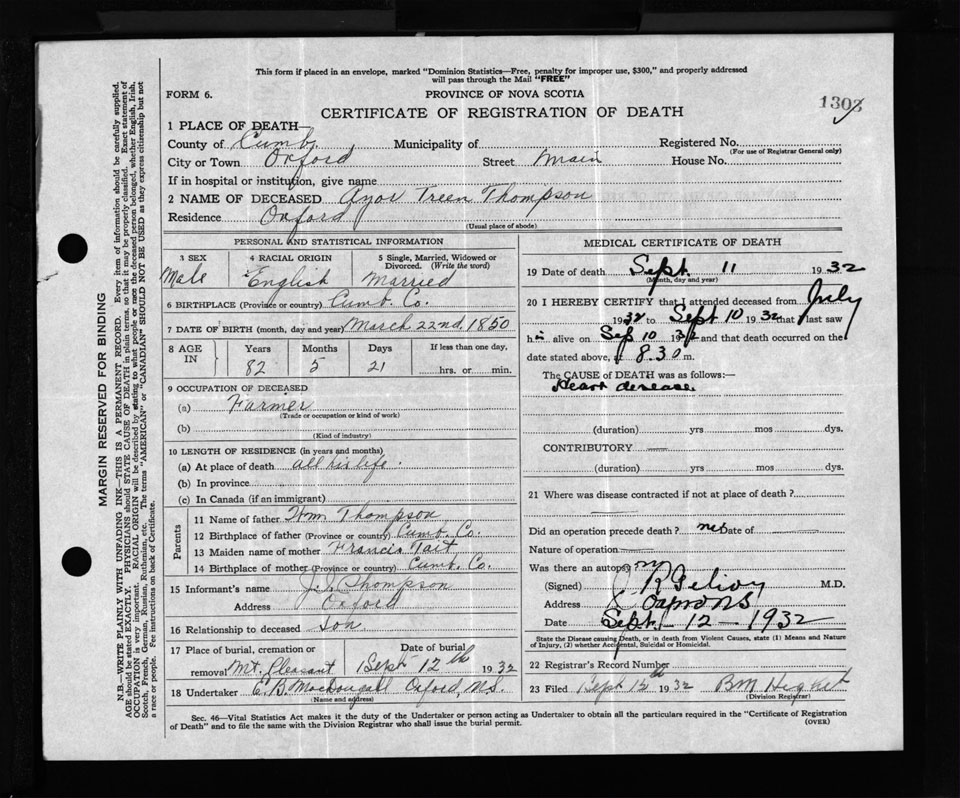 This form if placed in an envelope, marked "Dominion Statistics—Free, penalty for improper use, $300," and properly addressed
will pass through the Mail "FREE"
FORM 6.
PROVINCE OF NOVA SCOTIA
1303
CERTIFICATE OF REGISTRATION OF DEATH
1 PLACE OF DEATH—
County of Cumb. Municipality of Registered No.
(For use of Registrar General only)
City or Town Oxford Street Main House No.
If in hospital or institution, give name
2 NAME OF DECEASED Treen Thompson
Residence Oxford
(Usual place of abode)
PERSONAL AND STATISTICAL INFORMATION
3 SEX 4 RACIAL ORIGIN 5 Single, Married, Widowed or
Divorced. (Write the word)
Male English Married
6 BIRTHPLACE (Province or country) Cumb. Co.
7 DATE OF BIRTH (month, day and year) March 22nd, 1850
8 AGE IN Years Months Days If less than one day,
82 5 21 hrs. or min.
9 OCCUPATION OF DECEASED
(a) Farmer
(Trade or occupation or kind of work)
(b)
(Kind of industry)
10 LENGTH OF RESIDENCE (in years and months)
(a) At place of death all his life.
(b) In province
(c) In Canada (if an immigrant)
Parents
11 Name of father Wm Thompson
12 Birthplace of father (Province or country) Cumb. Co.
13 Maiden name of mother Francis Tait
14 Birthplace of mother (Province or country) Cumb. Co.
15 Informant's name Thompson
Address Oxford
16 Relationship to deceased Son
17 Place of burial, cremation or Date of burial
removal Mt. Pleasant Sept 12th 1932
18 Undertaker E. B. MacDougall Oxford, N.S.
(Name and address)
MEDICAL CERTIFICATE OF DEATH
19 Date of death Sept. 11 1932
(Month, day and year)
20 I HEREBY CERTIFY that I attended deceased from July
1932 to Sept 10 1932 that I last saw
him alive on Sep 10 1932 and that death occurred on the
date stated above, at 8.30 m.
The CAUSE OF DEATH was as follows:—
Heart disease
(duration) yrs mos dys.
CONTRIBUTORY —
(duration) yrs mos dys.
21 Where was disease contracted if not at place of death?
Did an operation precede death? Date of
Nature of operation
Was there an autopsy
(Signed) M.D.
Address
Date Sept - 12 - 1932
State the Disease causing Death, or in death from Violent Causes, state (1) Means and Nature
of Injury, (2) whether Accidental, Suicidal or Homicidal.
22 Registrar's Record Number
23 Filed Sept 1932
(Division Registrar)
Sec. 46—Vital Statistics Act makes it the duty of the Undertaker or person acting as Undertaker to obtain all the particulars required in the "Certificate of Registration
of Death" and to file the same with the Division Registrar who shall issue the burial permit.
(OVER)
MARGIN RESERVED FOR BINDING
N.B.—WRITE PLAINLY WITH UNFADING INK—THIS IS A PERMANENT RECORD. Every item of information should be carefully supplied.
AGE should be stated EXACTLY. PHYSICIANS should STATE CAUSE OF DEATH in plain terms, so that it may be properly classified. Exact statement of
OCCUPATION is very important. RACIAL ORIGIN will be described by stating to what people or race the deceased person belonged, whether English, Irish,
Scotch, French, German, Russian, Ruthenian, etc. The terms "AMERICAN" or "CANADIAN" SHOULD NOT BE USED as they express citizenship but not
a race or people. See instructions on back of Certificate.